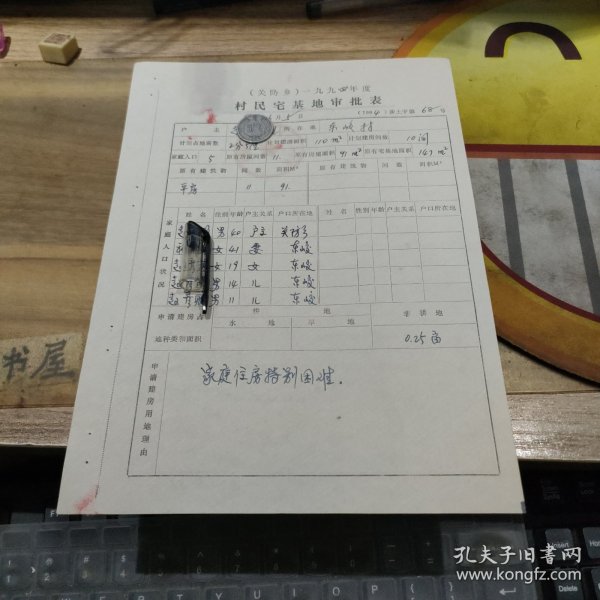 (关防乡)一九九四年度
村民宅基地审批表
月5日 (1994)乡土字第68号
户主 所在地 东峻村
计划占地面积 计划建房面积 110m² 计划建房间数 10间
家庭人口 5 原有房屋间数 11 原有房建面积 91m² 原有宅基地面积 147m²
原有建筑物 间数 面积M² 原有建筑物 间数 面积M²
平房 11 91
家庭人口状况
姓名 性别 年龄 户主关系 户口所在地 姓名 性别 年龄 户主关系 户口所在地
男 40 户主 关防乡
女 41 妻 东峻
女 19 女 东峻
男 14 儿 东峻
男 11 儿 东峻
申请建房占 耕地 非耕地
地种类和面积 水地 旱地 0.25亩
申请建房用地理由
家庭住房特别困难.
书屋
孔夫子旧书网
www.kongfz.com